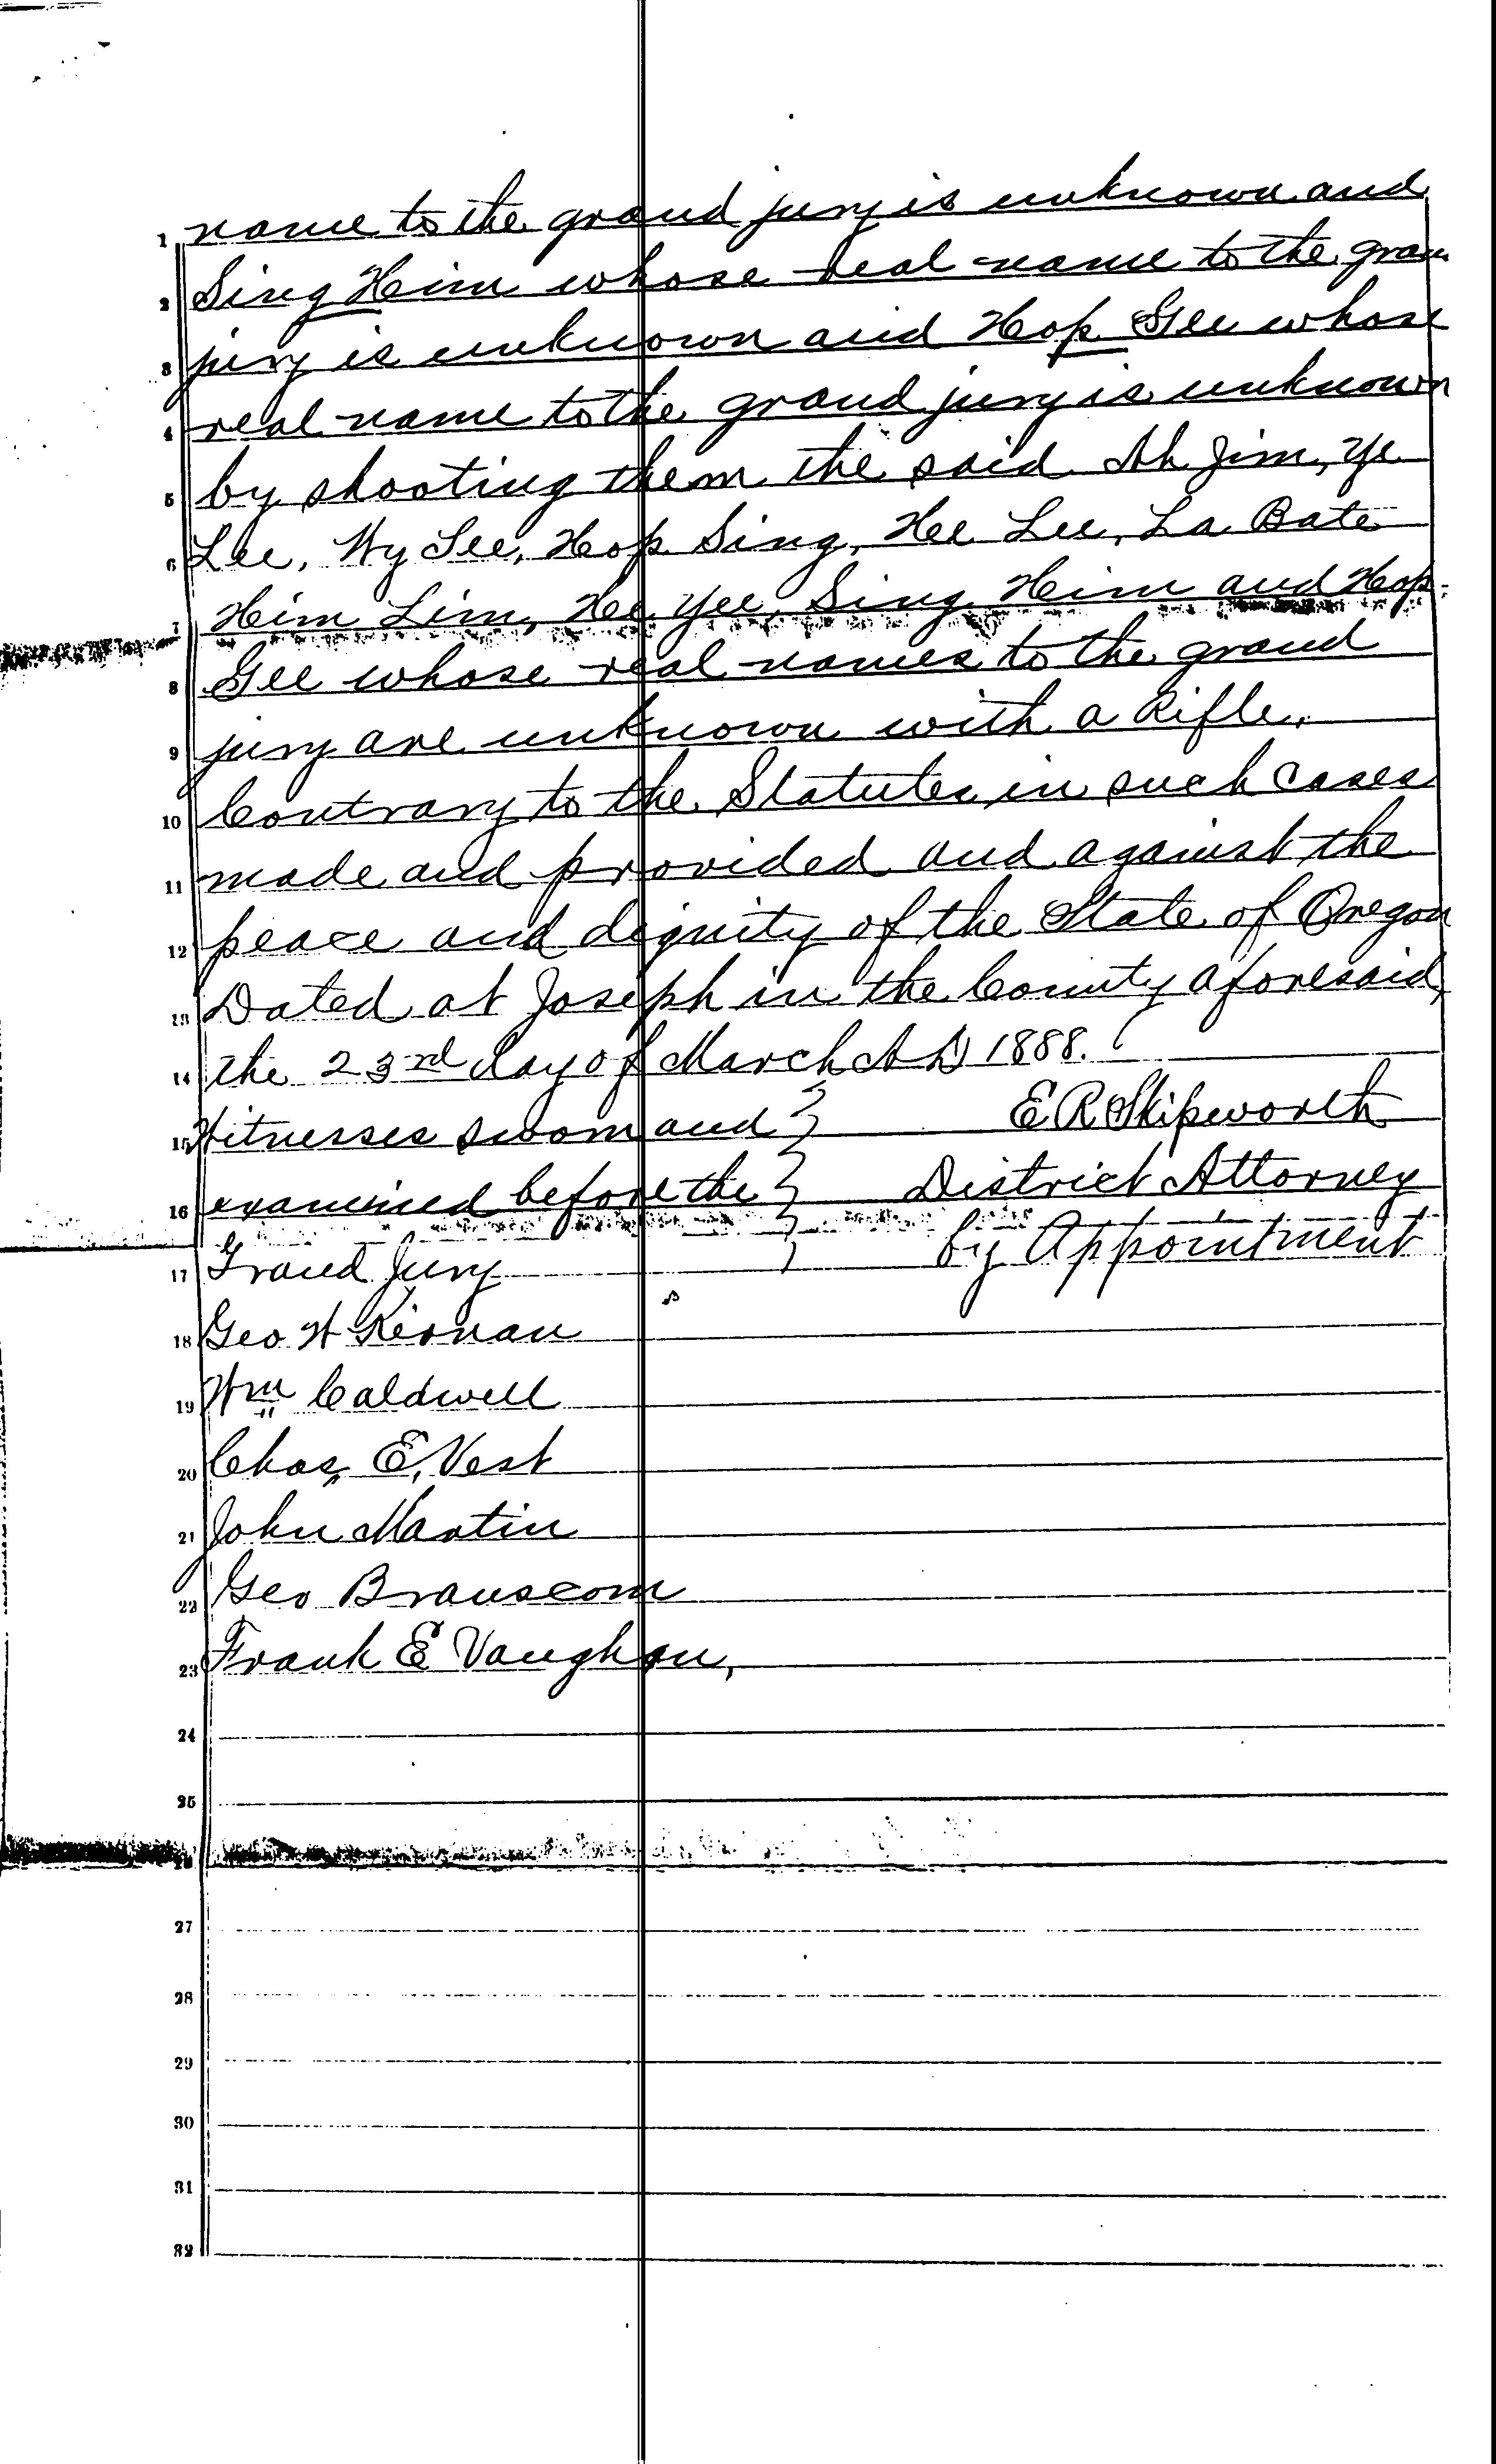 1 name to the grand jury is unknown and
2 Sing Heim whose real name to the gran
3 jury is unknown and Hop Gee whose
4 real name to the grand jury is unknown
5 by shooting them the said Ah Jim, Ye
6 Lee, Wy See, Hop Sing, Hee Lee, La Bate
7 Him Lim, Hee Yee, Sing Heim and Hop
8 Gee whose real names to the grand
9 jury are unknown with a Rifle.
10 Contrary to the Statutes in such cases
11 made and provided and against the
12 peace and dignity of the State of Oregon
13 Dated at Joseph in the County aforesaid,
14 the 23rd day of March A D 1888.
15 Witnesses sworn and } E R Skipworth
16 examined before the } District Attorney
17 Grand Jury } by Appointment
18 Geo W
19 Wm Caldwell
20 Chas, E, Vest
21 John Martin
22 Geo Branscom
23 Frank E Vaughan,
24
25
27
28
29
30
31
32